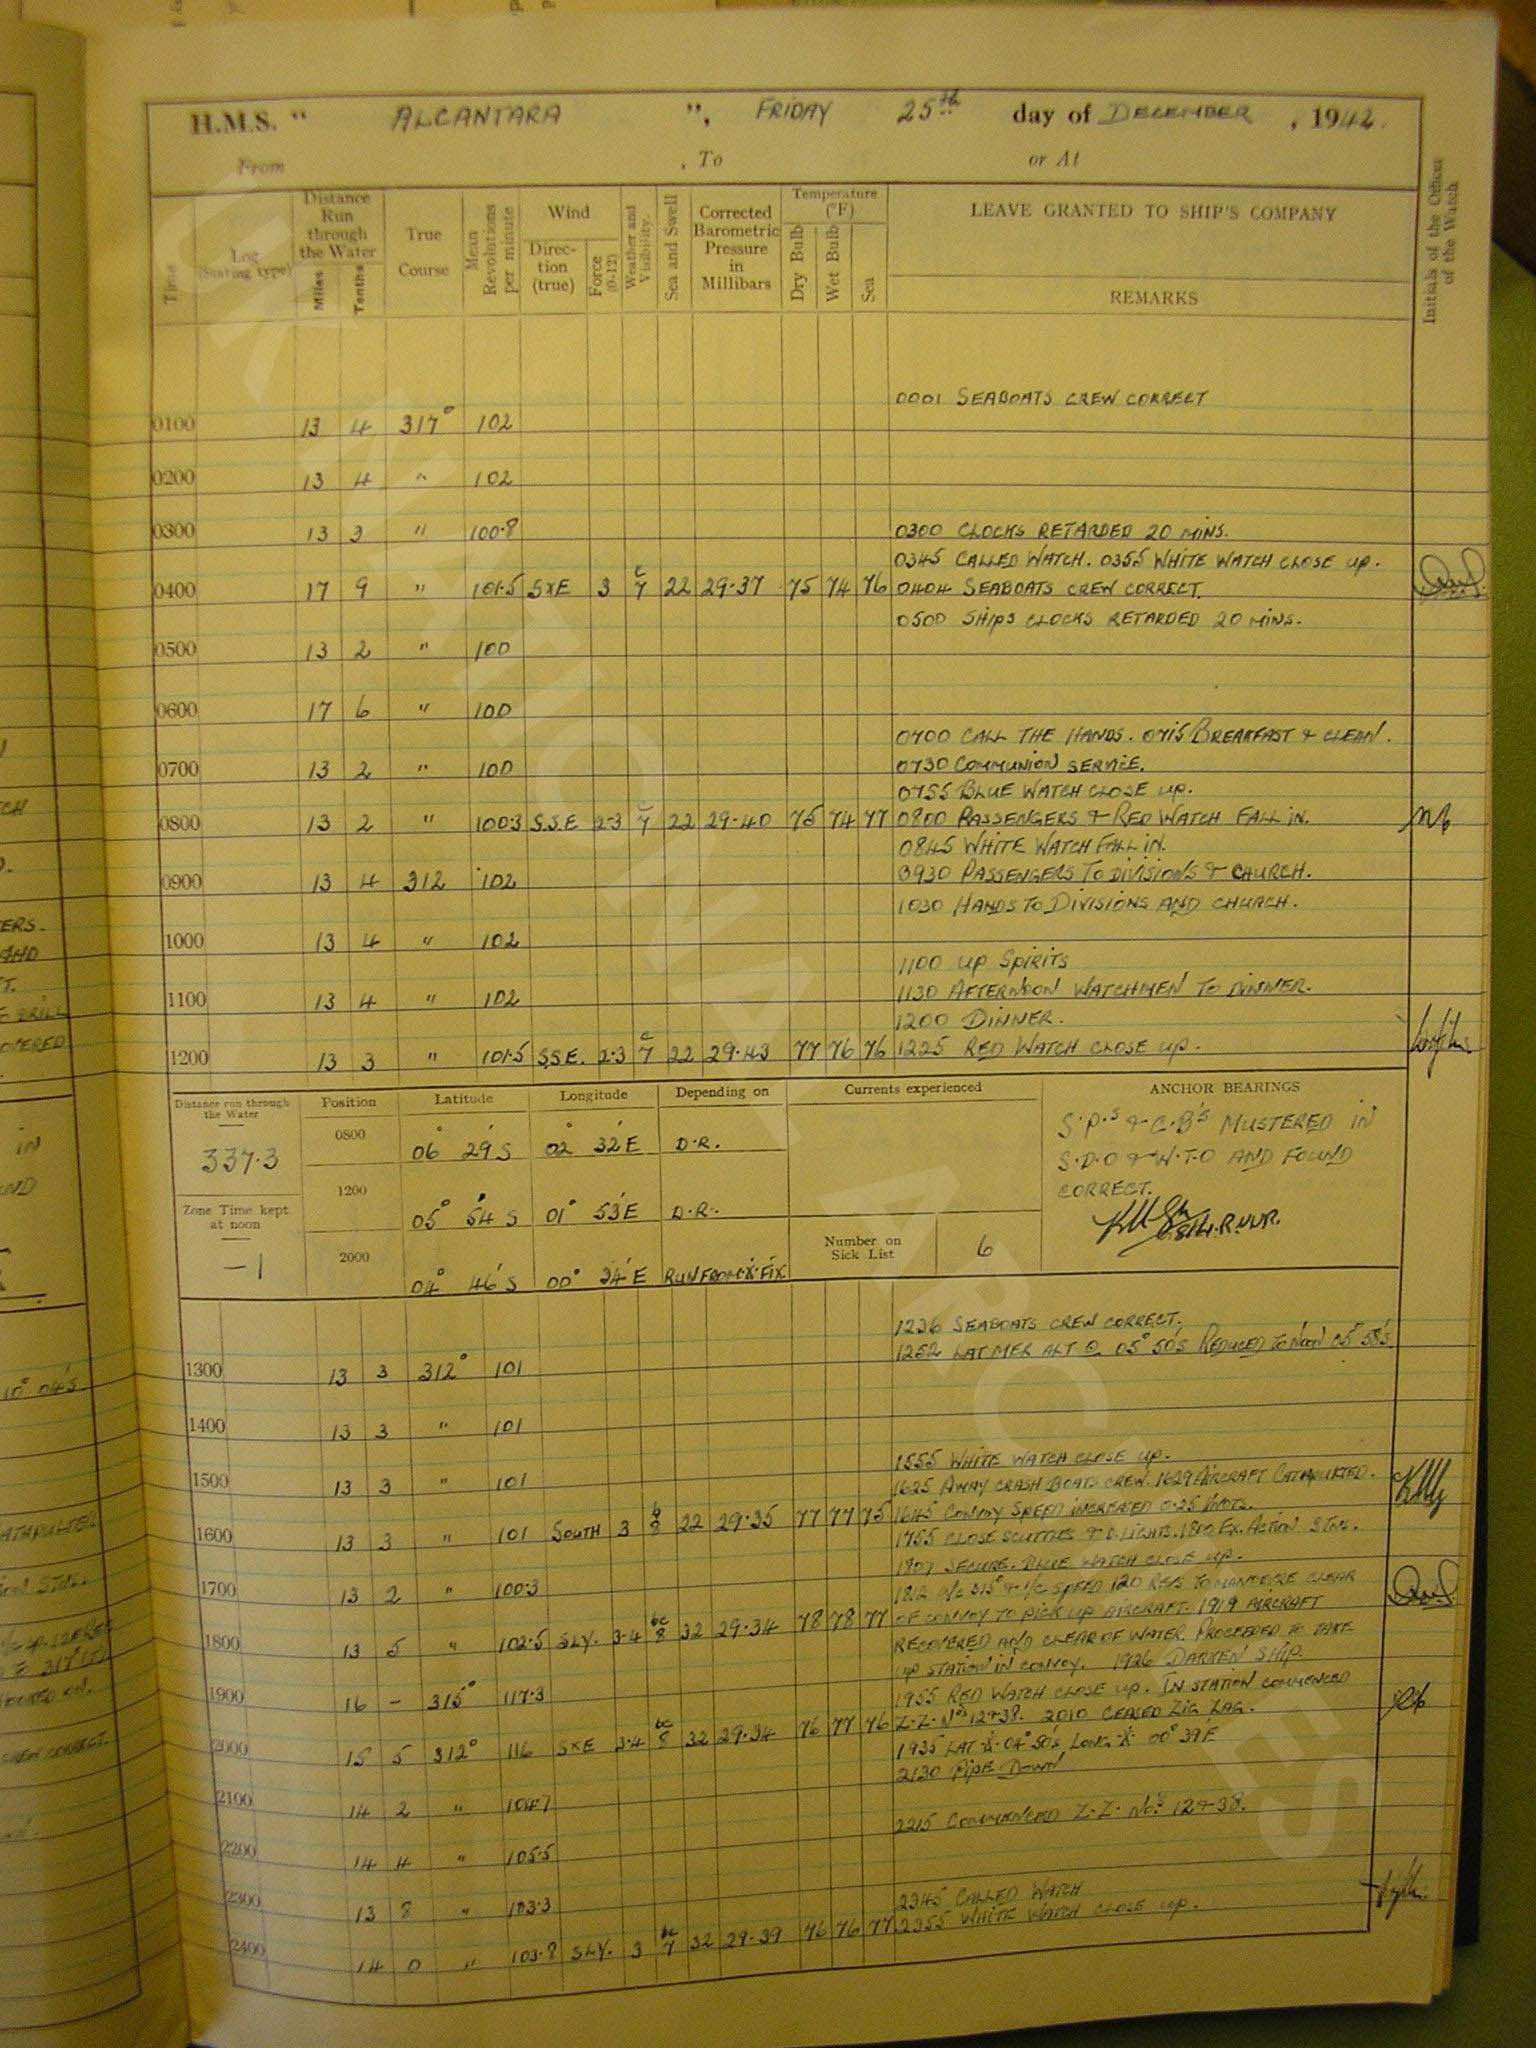 H.M.S. " ALCANTARA ", FRIDAY 25th day of DECEMBER, 1942.
From , To or At
Time
Log (Stating type)
Distance Run through the Water
Miles Tenths
True Course
Mean Revolutions per minute
Wind
Direction (true)
Force (0-12)
Weather and Visibility.
Sea and Swell
Corrected Barometric Pressure in Millibars
Temperature (°F)
Dry Bulb Wet Bulb Sea
LEAVE GRANTED TO SHIP'S COMPANY
REMARKS
Initials of the Officer of the Watch
0001 SEABOATS CREW CORRECT
0100 13 4 317° 102
0200 13 4 " 102
0300 13 3 " 100·8 0300 CLOCKS RETARDED 20 MINS.
0345 CALLED WATCH. 0355 WHITE WATCH CLOSE UP.
0400 17 9 " 101·5 SXE 3 c 7 22 29·37 75 74 76 0404 SEABOATS CREW CORRECT.
0500 SHIPS CLOCKS RETARDED 20 MINS.
0500 13 2 " 100
0600 17 6 " 100
0700 CALL THE HANDS. 0715 BREAKFAST & CLEAN.
0700 13 2 " 100 0730 COMMUNION SERVICE.
0755 BLUE WATCH CLOSE UP.
0800 13 2 " 100·3 S.S.E 2-3 c 7 22 29·40 75 74 77 0800 PASSENGERS & RED WATCH FALL IN.
0845 WHITE WATCH FALL IN.
0900 13 4 312 102 0930 PASSENGERS TO DIVISIONS & CHURCH.
1030 HANDS TO DIVISIONS AND CHURCH.
1000 13 4 " 102
1100 UP SPIRITS
1100 13 4 " 102 1130 AFTERNOON WATCHMEN TO DINNER.
1200 DINNER.
1200 13 3 " 101·5 S.S.E. 2-3 c 7 22 29·43 77 76 76 1225 RED WATCH CLOSE UP.
Distance run through the Water
337·3
Zone Time kept at noon
-1
Position Latitude Longitude Depending on
0800 06° 29' S 02° 32' E D.R.
1200 05° 54' S 01° 53' E D.R.
2000 04° 46' S 00° 34' E RUN FROM FIX
Currents experienced
Number on Sick List 6
ANCHOR BEARINGS
S.P.s & C.B's MUSTERED IN
S.D.O & W.T.O AND FOUND
CORRECT.
R.N.V.R.
1236 SEABOATS CREW CORRECT.
1252 LAT MER ALT 05° 50'S REDUCED TO NOON 05° 58'S
1300 13 3 312° 101
1400 13 3 " 101
1555 WHITE WATCH CLOSE UP.
1500 13 3 " 101 1625 AWAY CRASH BOATS CREW. 1629 AIRCRAFT CATAPULTED.
1645 CONVOY SPEED INCREASED 0·25 KNOTS.
1600 13 3 " 101 SOUTH 3 b 8 22 29·35 77 77 75 1755 CLOSE SCUTTLES & D. LIGHTS. 1800 EX. ACTION STNS.
1807 SECURE. BLUE WATCH CLOSE UP.
1700 13 2 " 100·3 1812 A/C 315° & I/C SPEED 120 REVS TO MANOEUVRE CLEAR
OF CONVOY TO PICK UP AIRCRAFT. 1919 AIRCRAFT
1800 13 5 " 102·5 SLY. 3-4 bc 8 32 29·34 78 78 77 RECOVERED AND CLEAR OF WATER. PROCEEDED TO TAKE
UP STATION IN CONVOY. 1926 DARKEN SHIP.
1900 16 - 315° 117·3 1955 RED WATCH CLOSE UP. IN STATION COMMENCED
Z.Z. Nos 12 & 38. 2010 CEASED ZIG ZAG.
2000 15 5 312° 116 SXE 3-4 bc 8 32 29·34 76 77 76 1935 LAT 04° 50'S LONG 00° 39'E
2130 PIPE DOWN
2100 14 2 " 104·7
2215 COMMENCED Z.Z. Nos 12 & 38.
2200 14 4 " 105·5
2300 13 8 " 103·3 2345 CALLED WATCH
2355 WHITE WATCH CLOSE UP.
2400 14 0 " 103·8 SLY. 3 bc 7 32 29·39 76 76 77